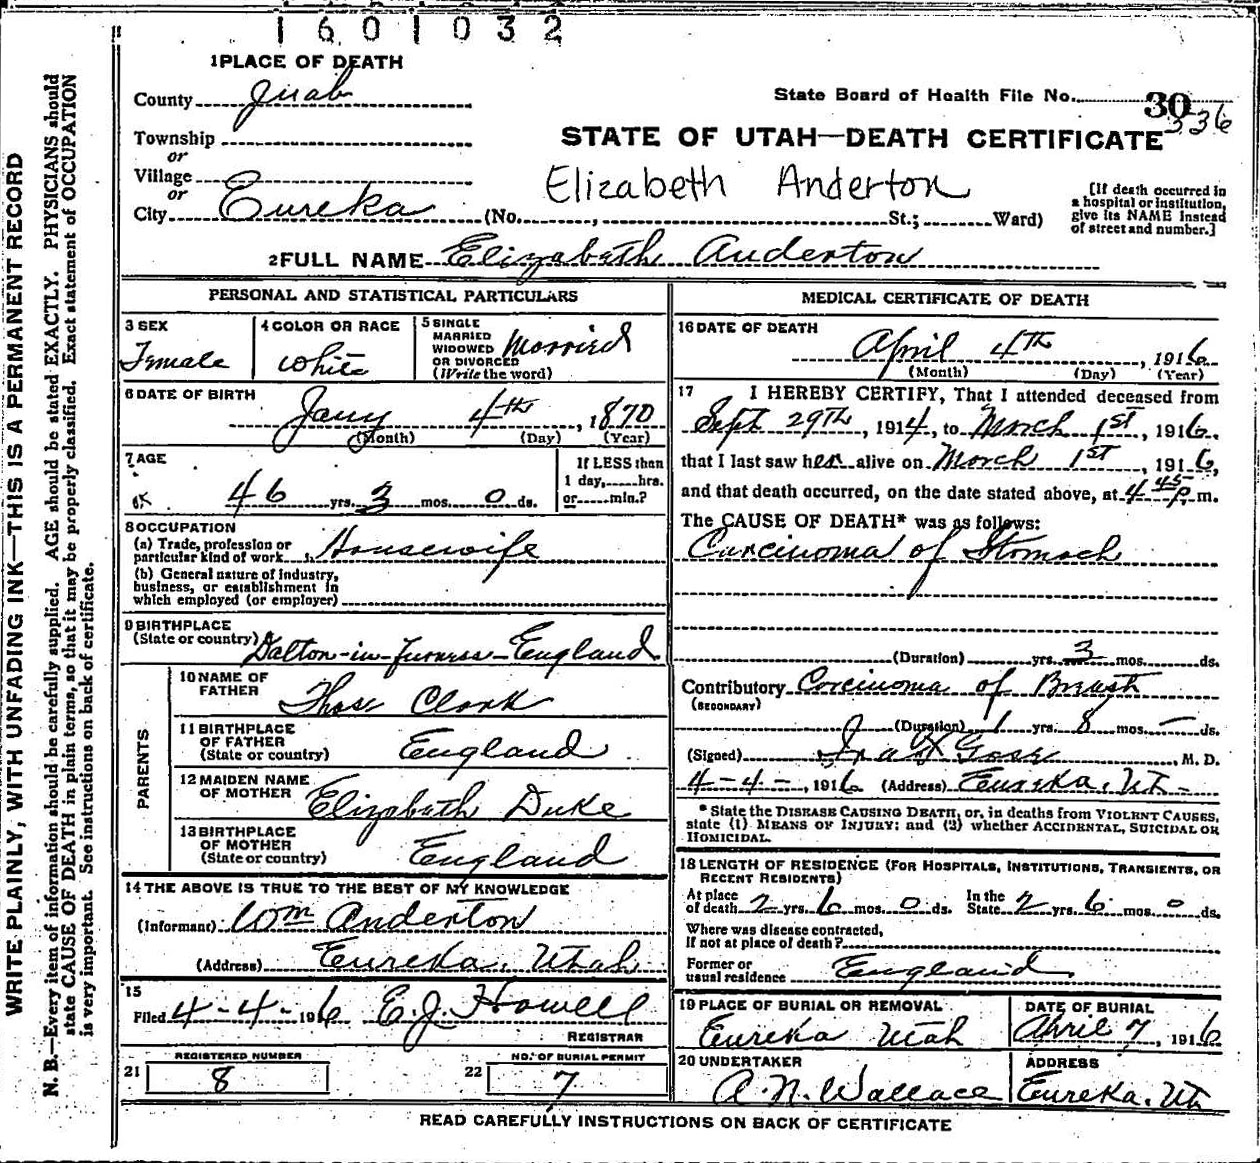 1601032
1 PLACE OF DEATH
County Juab
State Board of Health File No. 30
336
Township
or
Village
or
City Eureka (No. , St.; Ward)
STATE OF UTAH—DEATH CERTIFICATE
Elizabeth Anderton
[If death occurred in
a hospital or institution,
give its NAME instead
of street and number.]
2 FULL NAME Elizabeth Anderton
PERSONAL AND STATISTICAL PARTICULARS
3 SEX
Female
4 COLOR OR RACE
White
5 SINGLE
MARRIED
WIDOWED
OR DIVORCED
(Write the word)
Married
6 DATE OF BIRTH
Jany 4th, 1870
(Month) (Day) (Year)
7 AGE
46 yrs. 3 mos. 0 ds.
If LESS than
1 day, hrs.
or min.?
8 OCCUPATION
(a) Trade, profession or
particular kind of work Housewife
(b) General nature of industry,
business, or establishment in
which employed (or employer)
9 BIRTHPLACE
(State or country) Dalton-in-Furness-England
PARENTS
10 NAME OF
FATHER
Thos Clark
11 BIRTHPLACE
OF FATHER
(State or country) England
12 MAIDEN NAME
OF MOTHER
Elizabeth Duke
13 BIRTHPLACE
OF MOTHER
(State or country) England
14 THE ABOVE IS TRUE TO THE BEST OF MY KNOWLEDGE
(Informant) Wm Anderton
(Address) Eureka, Utah
15
Filed 4-4-1916 E.J. Howell
REGISTRAR
REGISTERED NUMBER
21 8
NO. OF BURIAL PERMIT
22 7
MEDICAL CERTIFICATE OF DEATH
16 DATE OF DEATH
April 4TH, 1916
(Month) (Day) (Year)
17 I HEREBY CERTIFY, That I attended deceased from
Sept 29TH, 1914, to March 1ST, 1916,
that I last saw her alive on March 1ST, 1916,
and that death occurred, on the date stated above, at 4 45 P. m.
The CAUSE OF DEATH* was as follows:
Carcinoma of Stomach
(Duration) yrs. 3 mos. ds.
Contributory Carcinoma of Breast
(SECONDARY)
(Duration) 1 yrs. 8 mos. — ds.
(Signed) , M. D.
4-4-, 1916 (Address) Eureka, Ut-
* State the DISEASE CAUSING DEATH, or, in deaths from VIOLENT CAUSES,
state (1) MEANS OF INJURY; and (2) whether ACCIDENTAL, SUICIDAL OR
HOMICIDAL.
18 LENGTH OF RESIDENCE (FOR HOSPITALS, INSTITUTIONS, TRANSIENTS, OR
RECENT RESIDENTS)
At place
of death 2 yrs. 6 mos. 0 ds. In the
State 2 yrs. 6 mos. 0 ds.
Where was disease contracted,
If not at place of death?
Former or
usual residence England
19 PLACE OF BURIAL OR REMOVAL
Eureka Utah
DATE OF BURIAL
April 7, 1916
20 UNDERTAKER
A. N. Wallace
ADDRESS
Eureka, Ut
READ CAREFULLY INSTRUCTIONS ON BACK OF CERTIFICATE
WRITE PLAINLY, WITH UNFADING INK—THIS IS A PERMANENT RECORD
N. B.—Every item of information should be carefully supplied. AGE should be stated EXACTLY. PHYSICIANS should
state CAUSE OF DEATH in plain terms, so that it may be properly classified. Exact statement of OCCUPATION
is very important. See instructions on back of certificate.